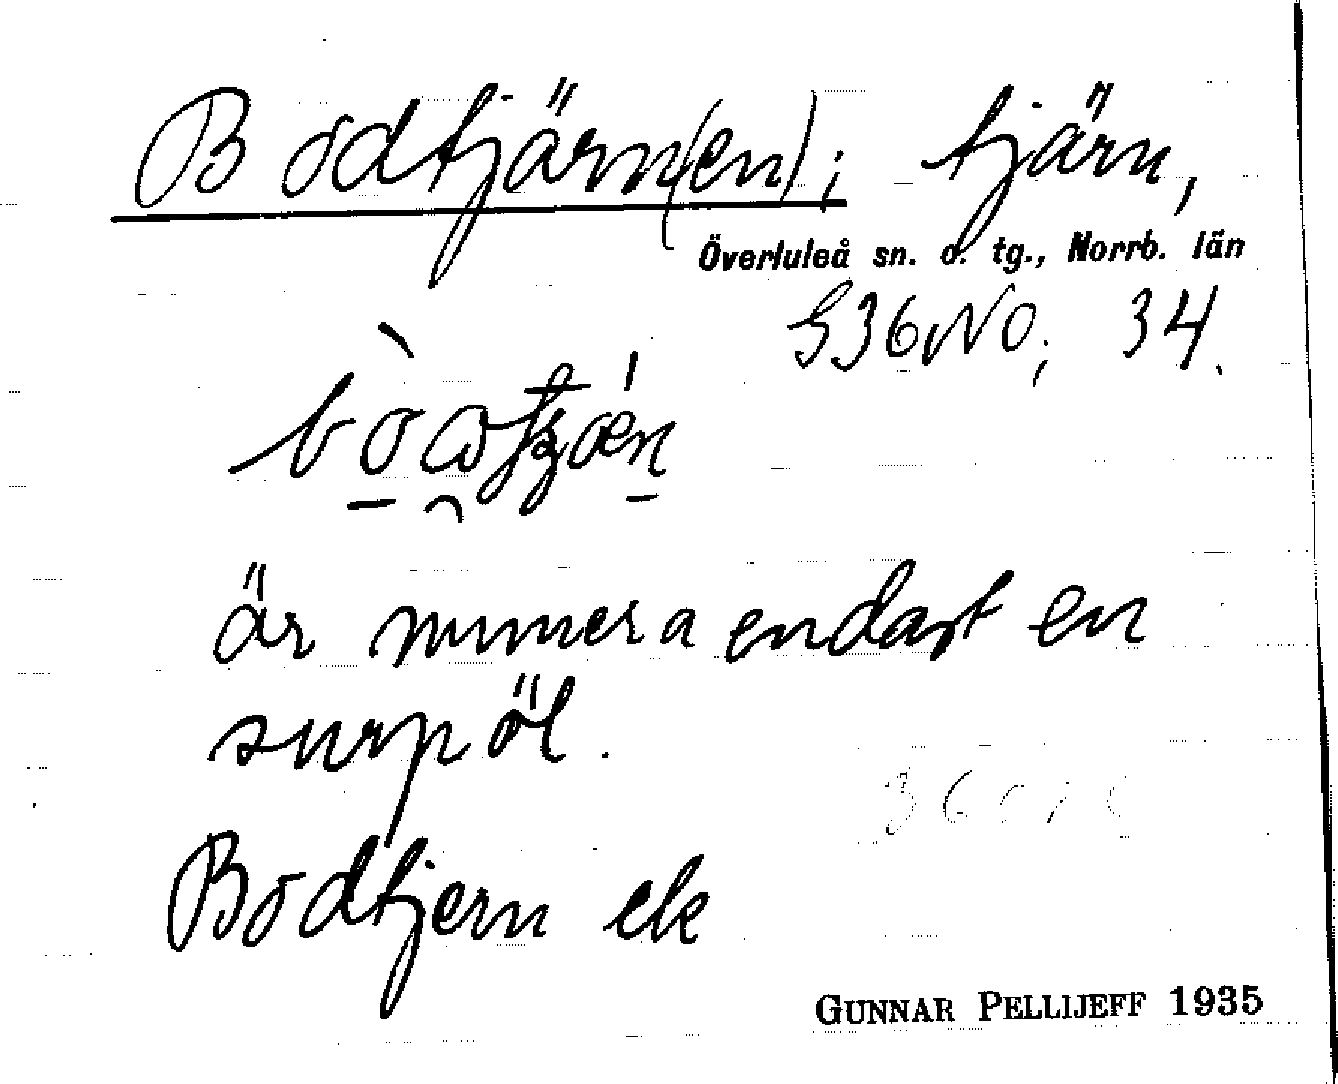 Bodtjärn(en); tjärn,
Överluleå sn. o. tg., Norrb. län
S36NO; 34.
är numera endast en
surpöl.
Bodtjern ek
GUNNAR PELLIJEFF 1935